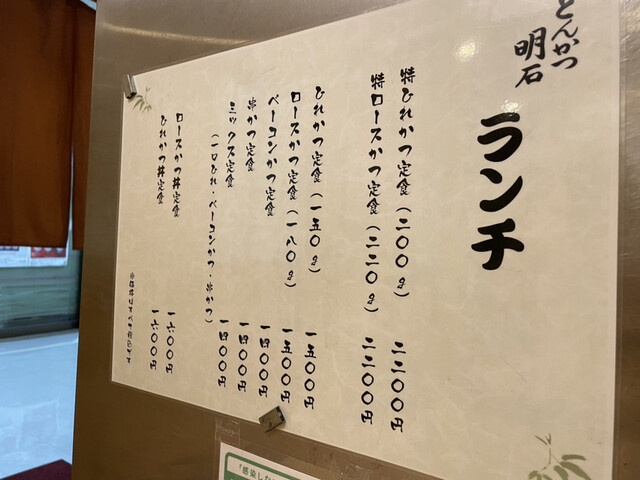 とんかつ
明石
ランチ
特ひれかつ定食(二〇〇g) 二二〇〇円
特ロースかつ定食(二二〇g) 二二〇〇円
ひれかつ定食(一五〇g) 一五〇〇円
ロースかつ定食(一八〇g) 一五〇〇円
ベーコンかつ定食 一四〇〇円
串かつ定食 一四〇〇円
ミックス定食 一四〇〇円
(一口ひれ・ベーコンかつ・串かつ)
ロースかつ丼定食 一六〇〇円
ひれかつ丼定食 一六〇〇円
「感染しな